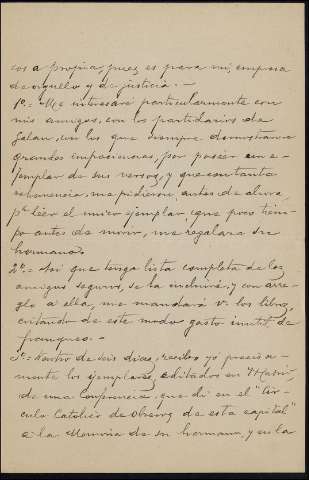 cos a propria, pues es para mi, empresa
de orgullo y de justicia. —
1º.= Me interesaré particularmente con
mis amigos, con los partidarios de
Galan, con los que siempre demostraron
grandes impaciencias, por poseer un e-
jemplar de sus versos, y que con tanta
me pidieron, antes de ahora,
pª leer el unico ejemplar que poco tiem-
po antes de morir, me regalara su
hermano.
2º.= Asi que tenga lista completa de los
amigos seguros, se la incluiré; y con arre-
glo a ella, me mandará V. los libros,
evitando de este modo gasto inutil, de
franqueo. —
3º.= Dentro de seis dias, recibo yo precisa-
mente los ejemplares, editados en
de una Conferencia, que dí en el "Cir-
culo Catolico de Obreros de esta capital"
a la Memoria de su hermano, y en la